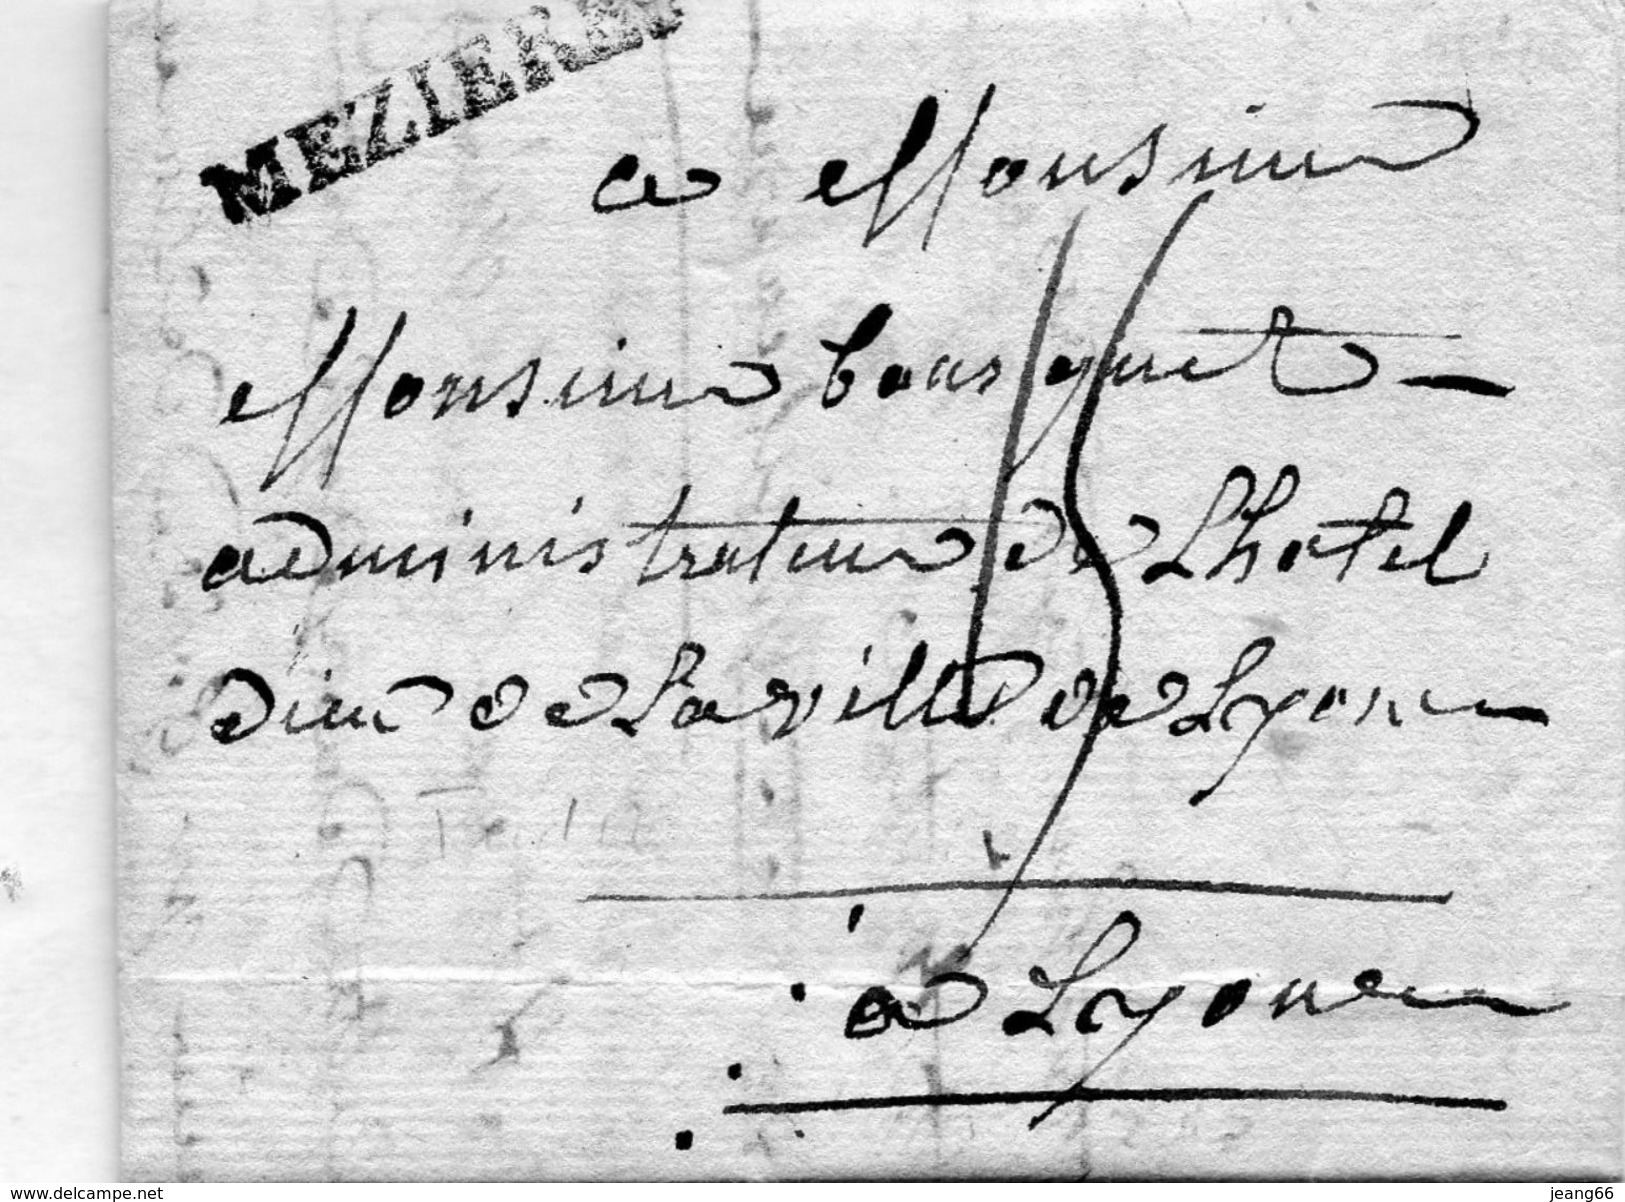 MEZIERES
a Monsieur
Monsieur bousquet
administrateur de Lhotel
dieu de La ville de Lyon
15
a Lyon
www.delcampe.net
jeang66